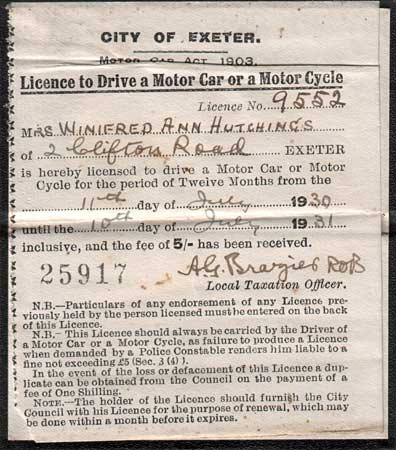 CITY OF EXETER.
MOTOR CAR ACT 1903.
Licence to Drive a Motor Car or a Motor Cycle
Licence No. 9552
MRS WINIFRED ANN HUTCHINGS
of 2 Clifton Road EXETER
is hereby licensed to drive a Motor Car or Motor
Cycle for the period of Twelve Months from the
11th day of July 1930
until the 10th day of July 1931
inclusive, and the fee of 5/- has been received.
25917 A.G. Brazier
Local Taxation Officer.
N.B.—Particulars of any endorsement of any Licence pre-
viously held by the person licensed must be entered on the back
of this Licence.
N.B.—This Licence should always be carried by the Driver of
a Motor Car or a Motor Cycle, as failure to produce a Licence
when demanded by a Police Constable renders him liable to a
fine not exceeding £5 (Sec. 3 (4) ).
In the event of the loss or defacement of this Licence a dup-
licate can be obtained from the Council on the payment of a
fee of One Shilling.
NOTE.—The holder of the Licence should furnish the City
Council with his Licence for the purpose of renewal, which may
be done within a month before it expires.